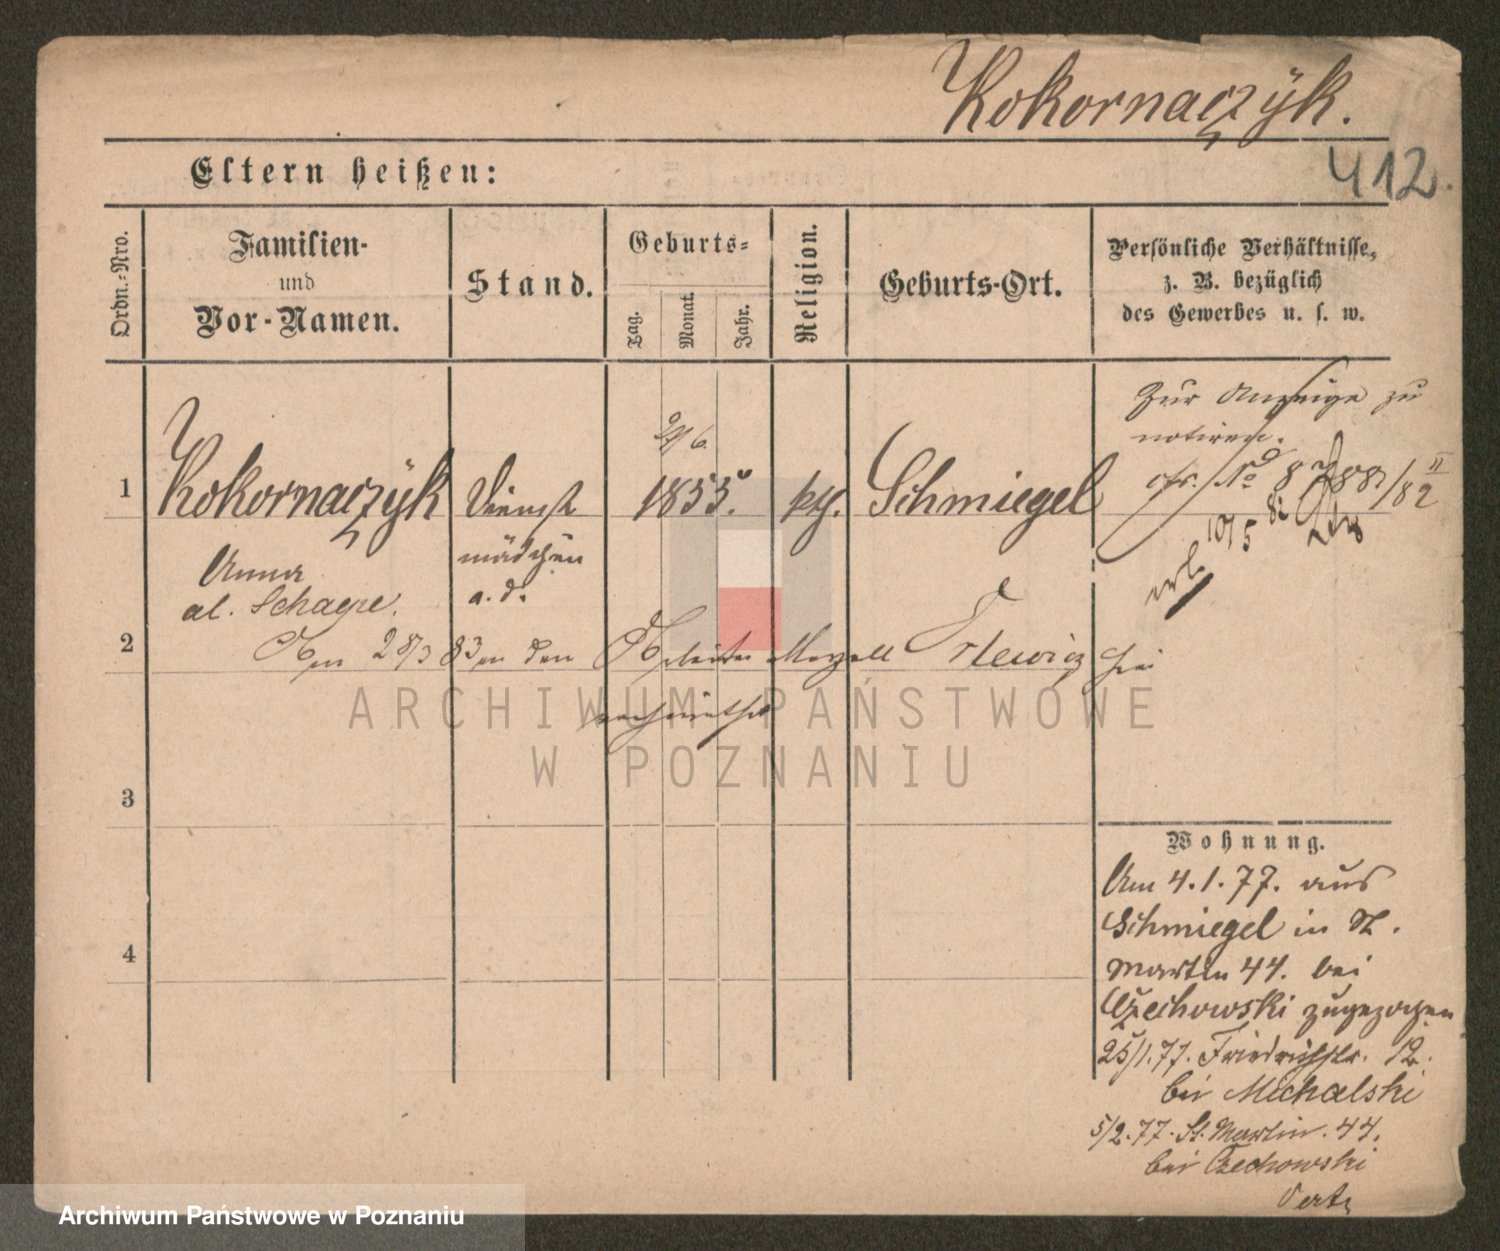 Kokornaczÿk.
412.
Eltern heißen:
Ordn.-Nro.
Familien-
und
Vor-Namen.
Stand.
Geburts-
Tag.
Monat.
Jahr.
Religion.
Geburts-Ort.
Persönliche Verhältnisse,
z. B. bezüglich
des Gewerbes u. s. w.
Zur Anzeige zu
notiren.
1
Kokornaczÿk
Dienst
mädchen
a. D.
29/6.
1855.
kth.
Schmiegel
cfr. No 8788/82 II
10/5 82
erl.
Anna
al. Schagze.
2
Am 28/3 83 an den Arbeiter Marzell Orlewicz hier
verheirathet
ARCHIWUM PAŃSTWOWE
W POZNANIU
3
4
Wohnung.
Am 4.1.77. aus
Schmiegel in St.
Martin 44. bei
Czechowski zugezogen
25/1.77. Friedrichstr. 12.
bei Michalski
5/2.77. St. Martin. 44.
bei Czechowski
Archiwum Państwowe w Poznaniu